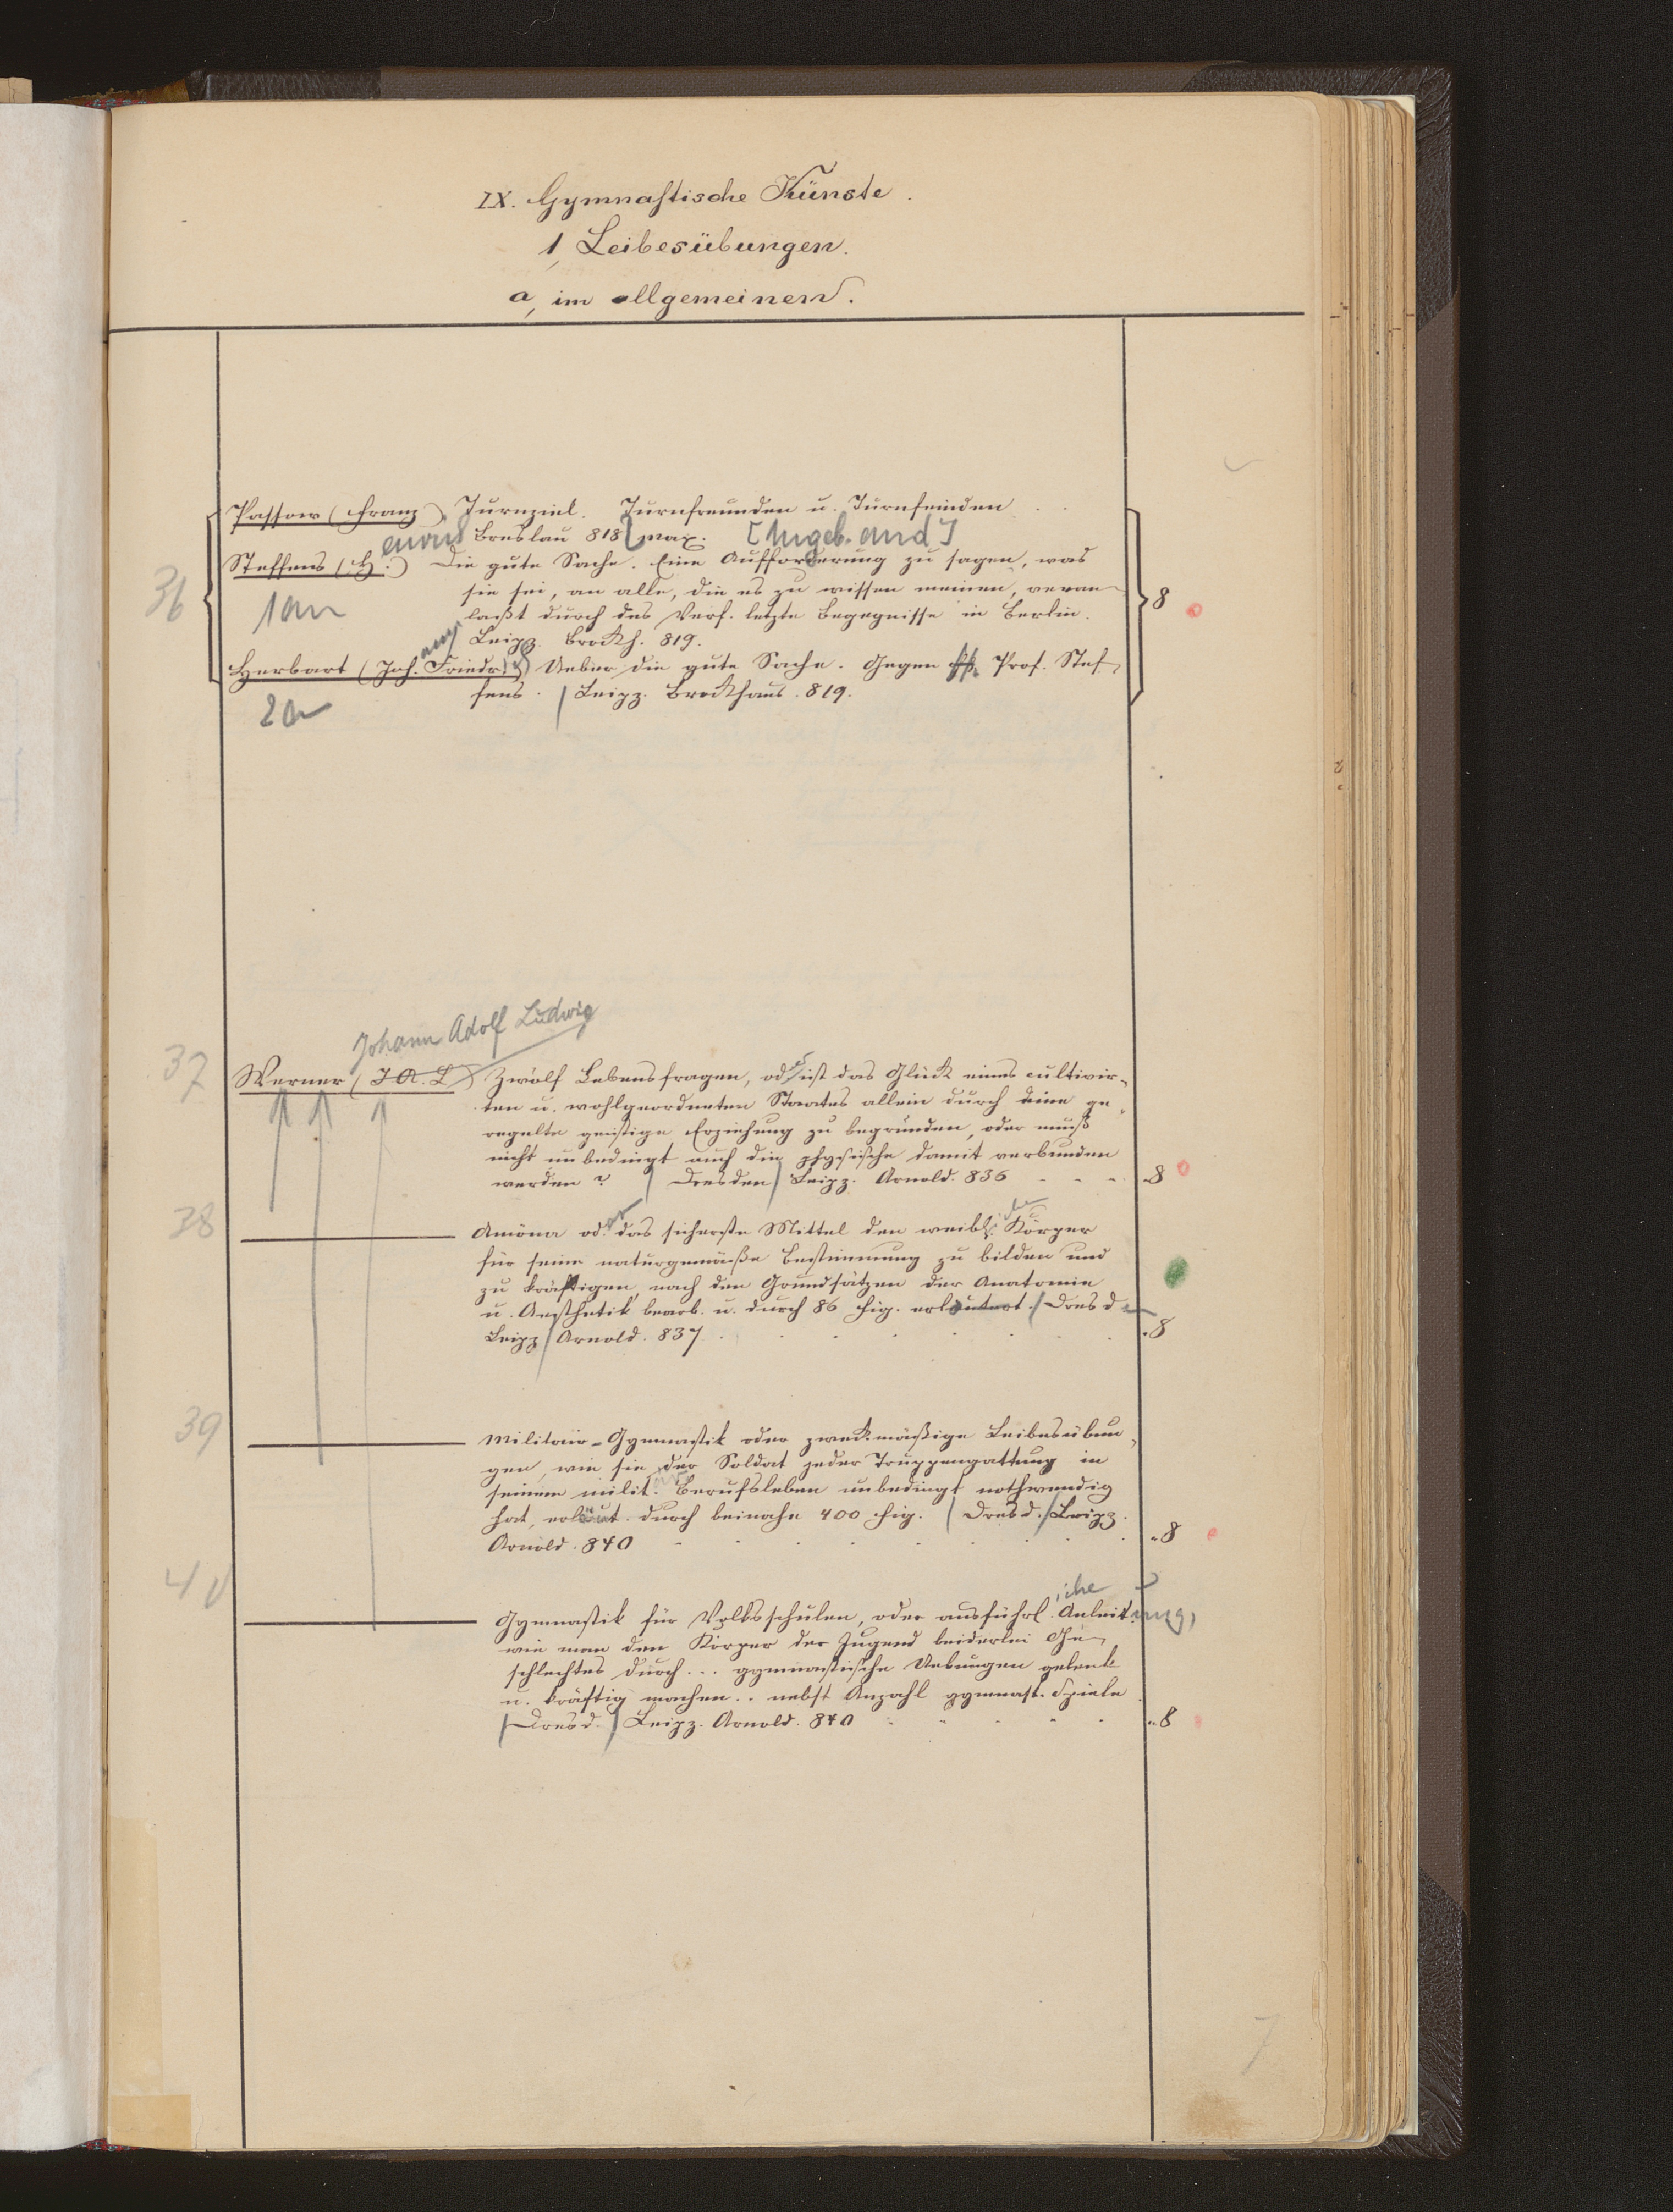 IX. Gymnastische Künste.
1, Leibesübungen.
a, im allgemeinen.
Passow (Franz) Turnziel. Turnfreunden u. Turnfeinden
Breslau 818 Max. [Angeb. and]
36
Steffens (H.) Die gute Sache. Eine Aufforderung zu sagen, was
sie sei, an alle, die es zu wissen meinen, veran-
laßt durch des Verf. letzte Begegnisse in Berlin.
Leipz. Brockh. 819.
8
1an
Herbart (Joh. Friedr.) Ueber die gute Sache. Gegen Prof. Stef-
fens. Leipz. Brockhaus. 819.
2an
Johann Adolf Ludwig
37
Werner (J A. L) Zwölf Lebensfragen, od. ist das Glück eines cultivir-
ten u. wohlgeordneten Staates allein durch eine ge-
regelte geistige Erziehung zu begründen, oder muß
nicht unbedingt auch die physische damit verbunden
werden? Dresden Leipz. Arnold. 836 8
38
Amöna od. das sicherste Mittel den weibl. Körper
für seine naturgemäße Bestimmung zu bilden und
zu kräftigen, nach den Grundsätzen der Anatomie
u. Aesthetik bearb. u. durch 86 Fig. erläutert. Dresden
Leipz Arnold. 837 8
39
Militair-Gymnastik oder zweckmäßige Leibesübun-
gen, wie sie der Soldat jeder Truppengattung in
seinem milit. Berufsleben unbedingt nothwendig
hat, erläut. durch beinahe 400 Fig. Dresd. Leipz.
Arnold. 840 8
40
Gymnastik für Volksschulen, oder ausführliche Anleitung,
wie man den Körper der Jugend beiderlei Ge-
schlechtes durch... gymnastische Uebungen gelenk
u. kräftig machen.. nebst Anzahl gymnast. Spiele
Dresd. Leipz. Arnold. 840 8
7